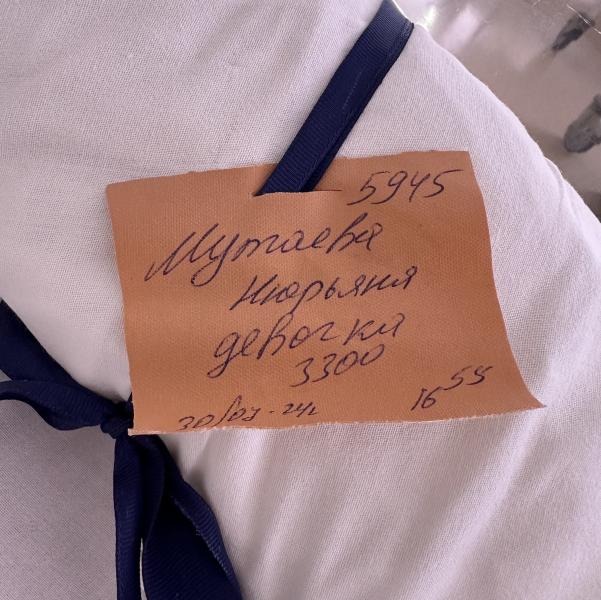 5945
Мутаева
Нюрьяна
девочка
3300
30/07-24г 16 55